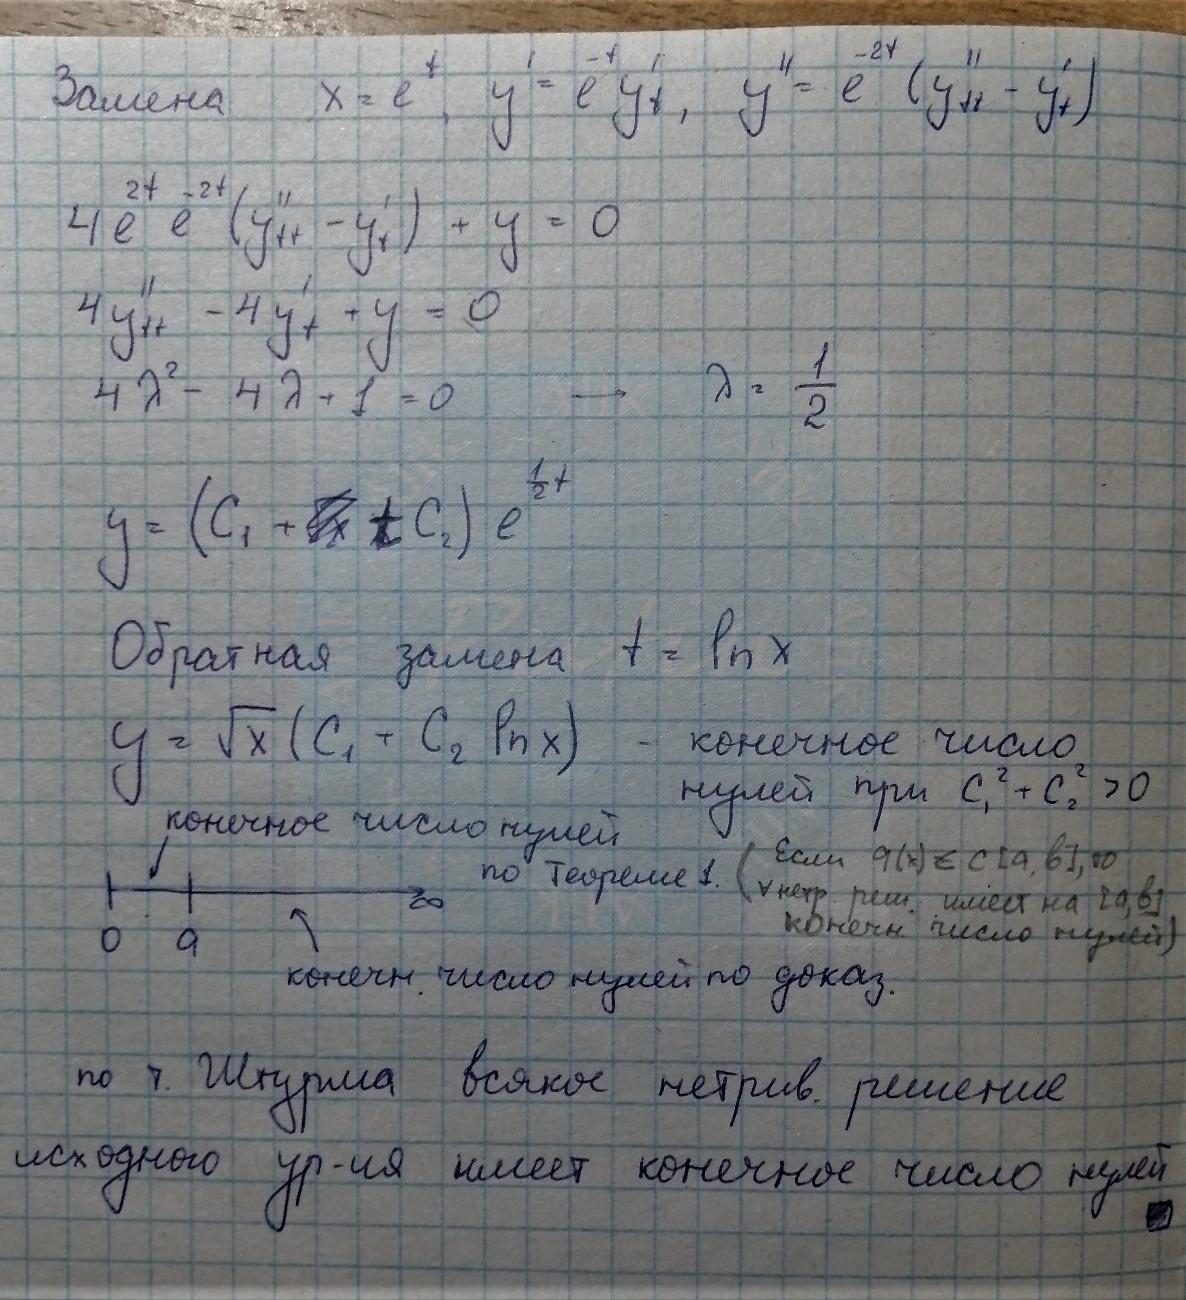 Замена x = e^t, y' = e^{-t} y'_t, y'' = e^{-2t} (y''_{tt} - y'_t)
4e^{2t} e^{-2t} (y''_{tt} - y'_t) + y = 0
4y''_{tt} - 4y'_t + y = 0
4λ² - 4λ + 1 = 0 → λ = 1/2
y = (C₁ + t C₂) e^{½t}
Обратная замена t = ln x
y = √x (C₁ + C₂ ln x) - конечное число
нулей при C₁² + C₂² > 0
конечное число нулей
по Теореме 1. (Если q(x) ∈ C[a,b], то
∀ нетр. реш. имеет на [a,b]
конечн. число нулей)
0 a ∞
конечн. число нулей по доказ.
по т. Штурма всякое нетрив. решение
исходного ур-ия имеет конечное число нулей